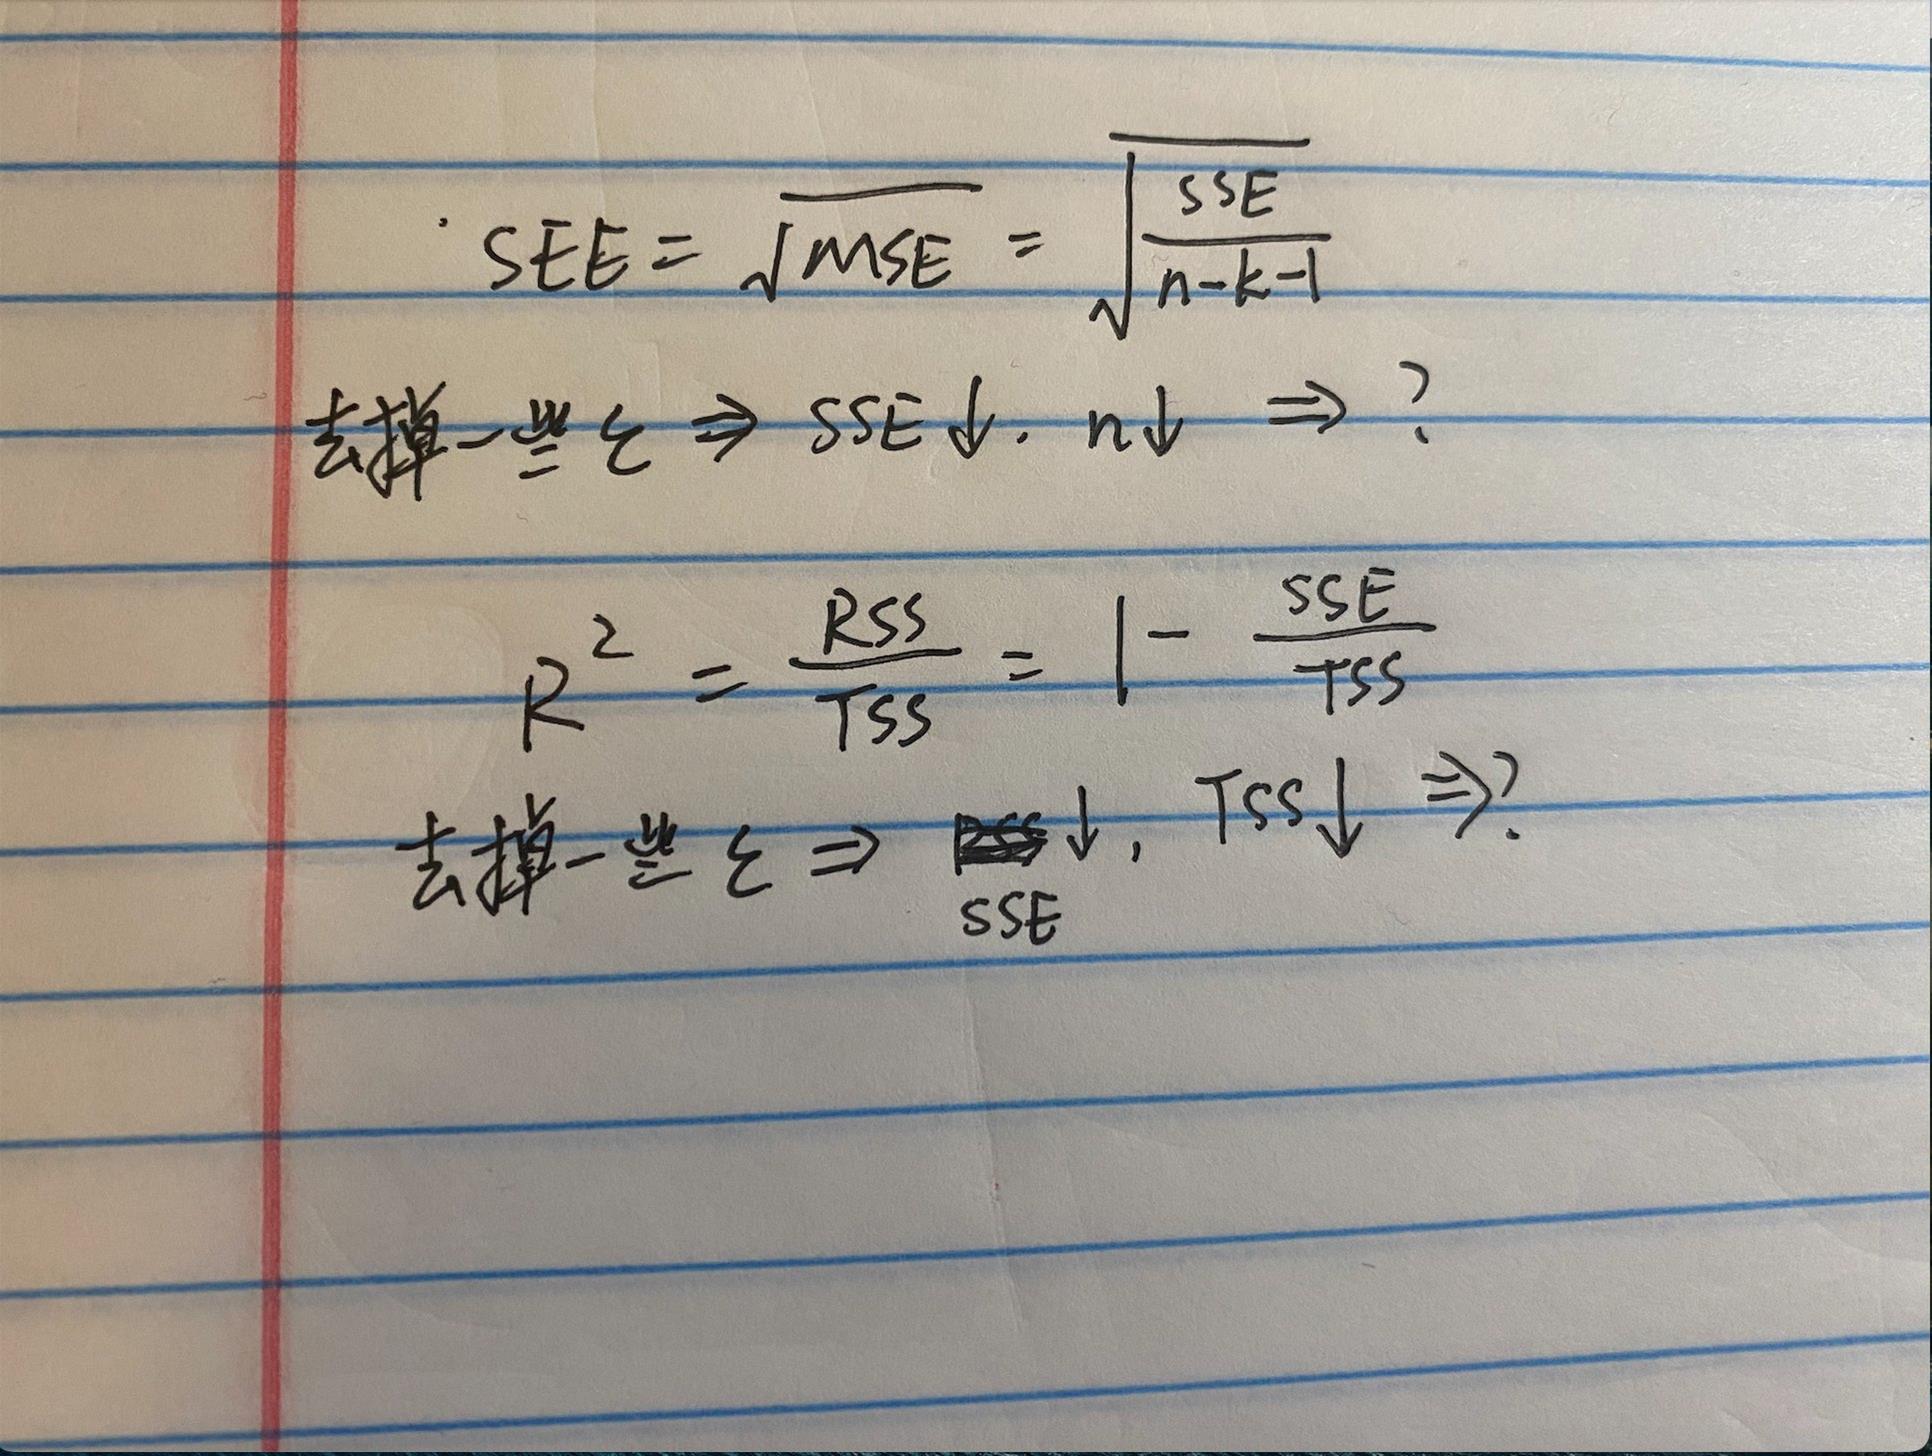 SEE = √MSE = √(SSE/(n-k-1))
去掉一些 ξ ⇒ SSE↓. n↓ ⇒ ?
R² = RSS/TSS = 1 - SSE/TSS
去掉一些 ξ ⇒ SSE↓, TSS↓ ⇒?